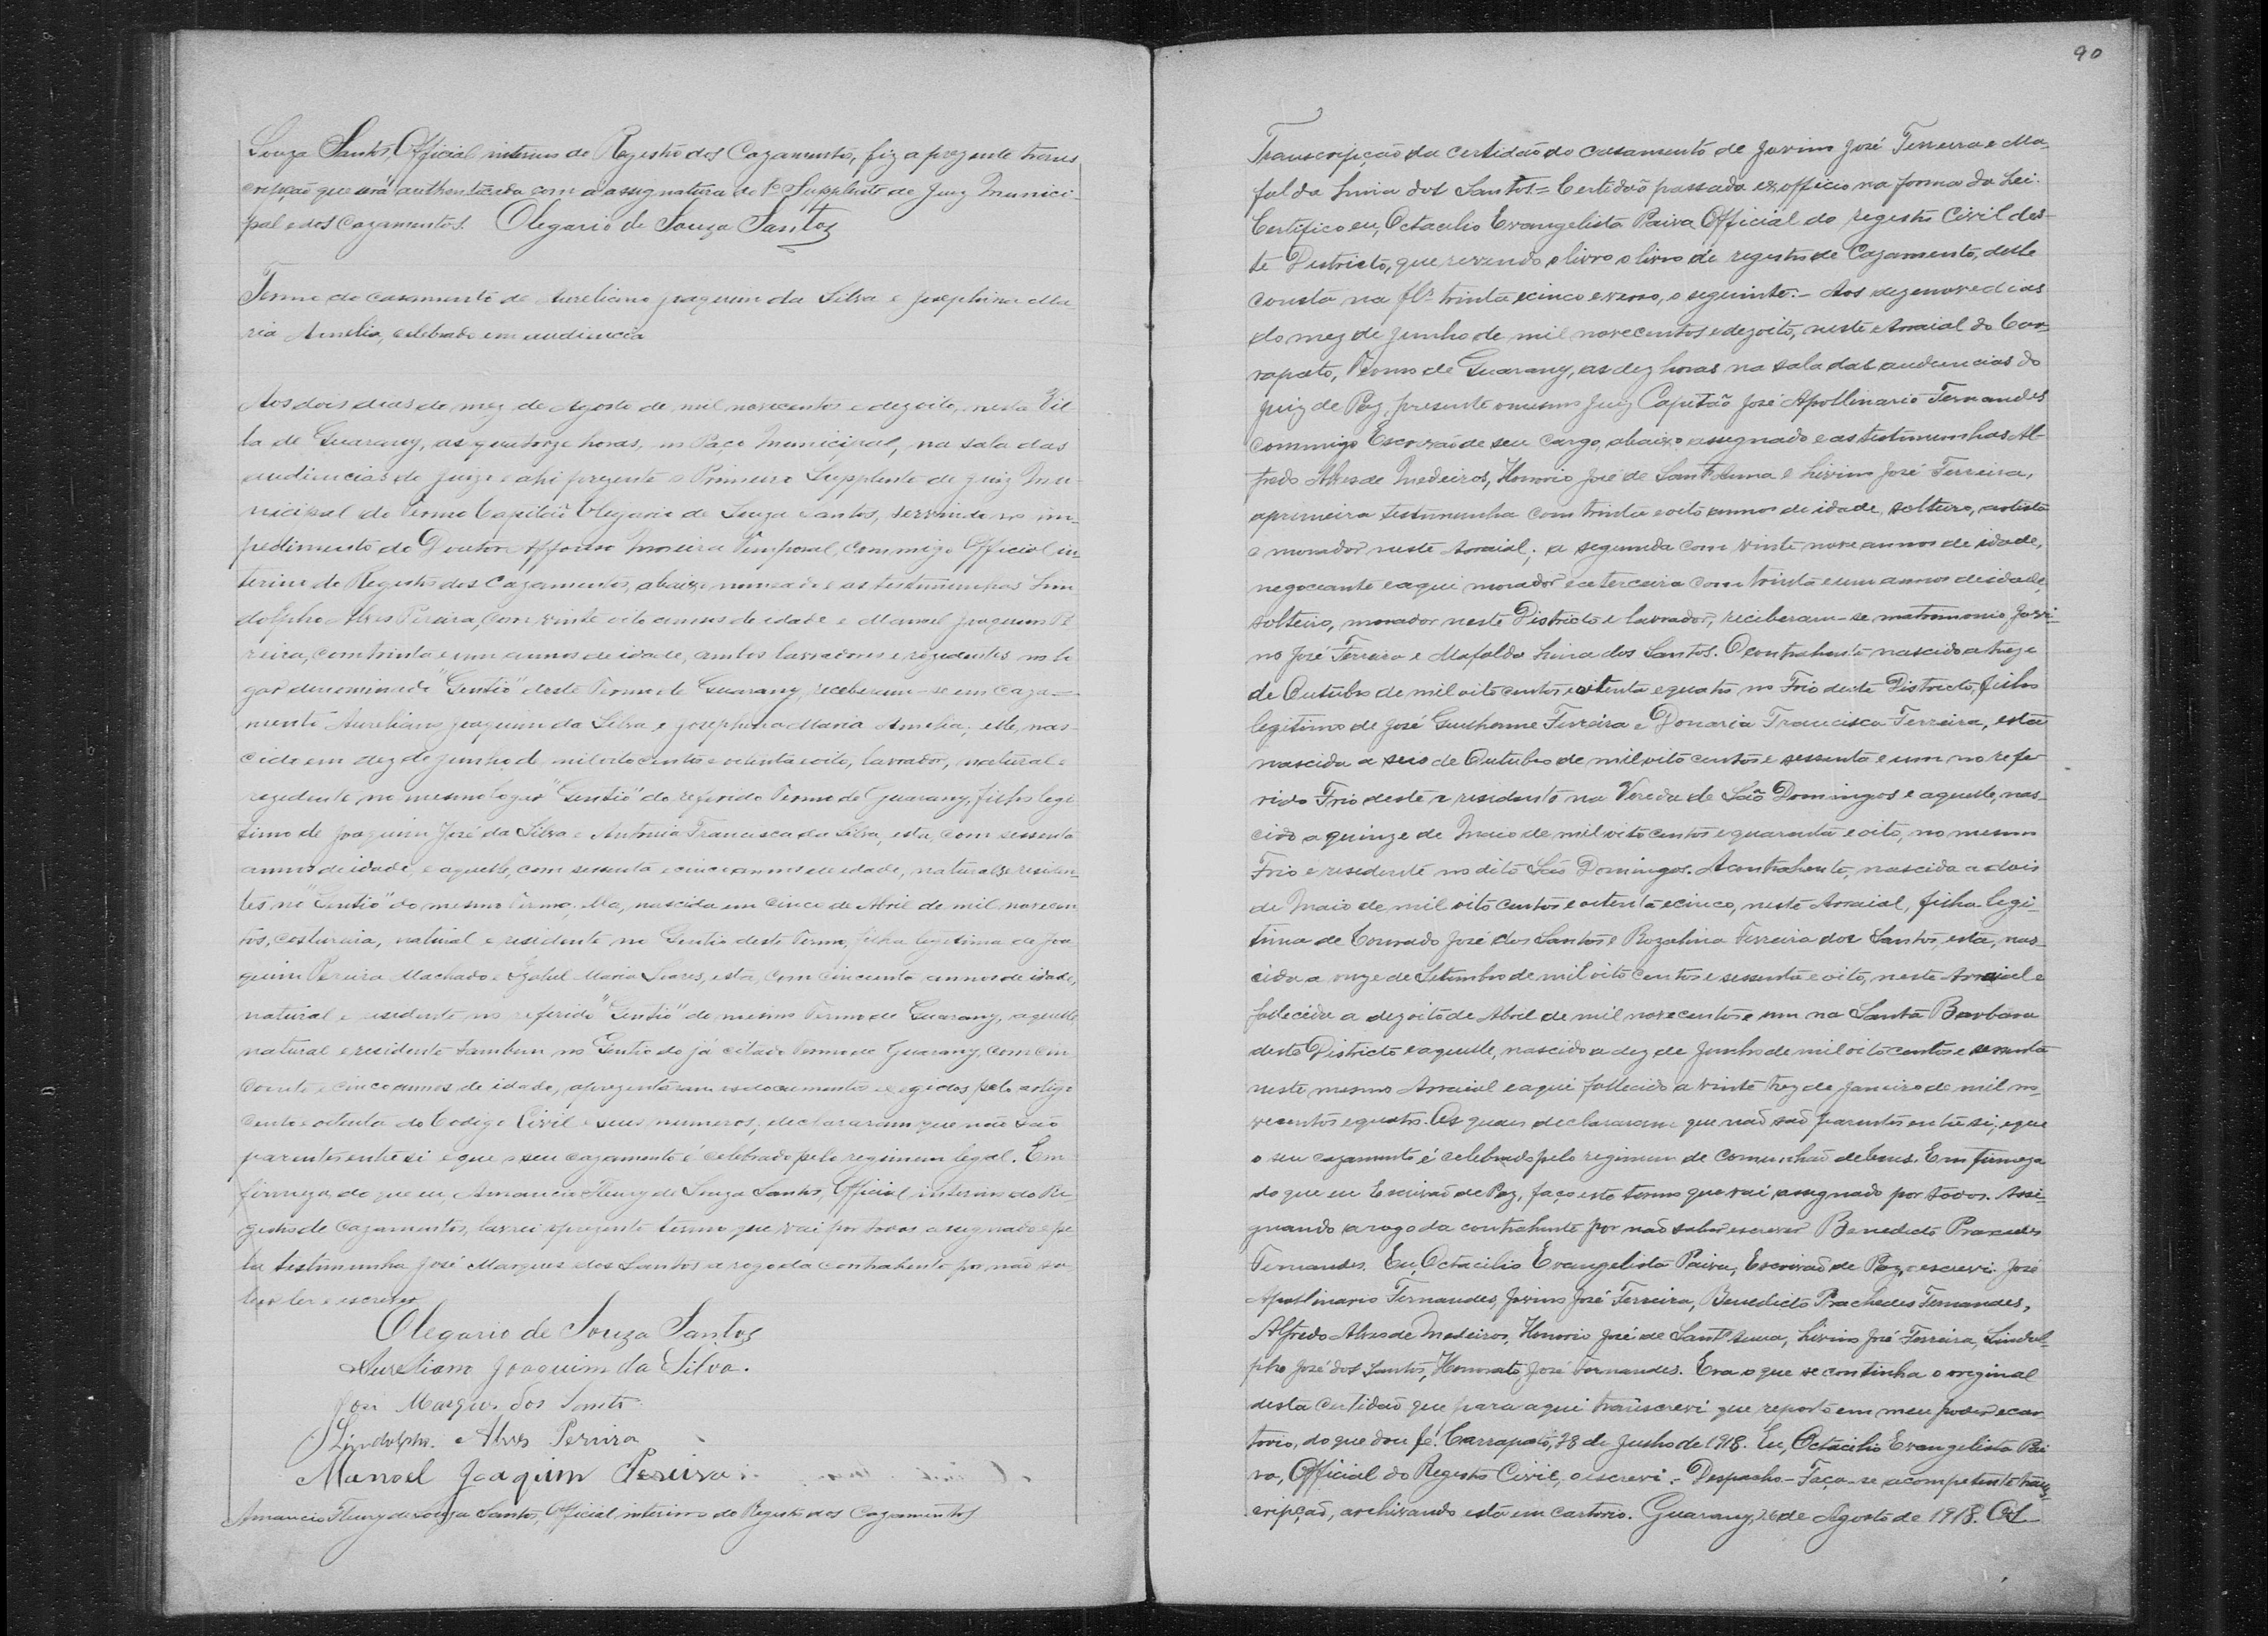 Souza Santos, Official interino de Registro dos Cazamentos, fiz a prezente trans
cripção que será authenticada com a assignatura do 1º Supplente de Juiz Munici-
pal e dos Cazamentos. Olegario de Souza Santos
Termo de casamento de Aureliano Joaquim da Silva e Josephina Ma-
ria Amelia, celebrado em audiencia
Aos dois dias do mez de Agosto de mil novecentos e dezoito, nesta Vil
la de Guarany, as quatorze horas, no Paço Municipal, na sala das
audiencias do Juizo e ahi prezente o Primeiro Supplente de Juiz Mu-
nicipal do Termo Capitão Olegario de Souza Santos, servindo no im-
pedimento do Doutor Affonso Moreira Temporal, commigo Official in-
terino do Registro dos Cazamentos, abaixo nomeado e as testimunhas Lin
dolpho Alves Pereira, com vinte oito annos de idade e Manoel Joaquim Pe
reira, com trinta e um annos de idade, ambos lavradores e rezidentes no lo
gar denominado "Gentio" deste Termo de Guarany, receberam-se em caza-
mento Aureliano Joaquim da Silva e Josephina Maria Amelia; elle, nas-
cido em dez de Junho de mil oito centos e oitenta e oito, lavrador, natural e
rezidente no mesmo logar "Gentio" do referido Termo de Guarany, filho legi
timo de Joaquim José da Silva e Antonia Francisca da Silva, esta, com sessenta
annos de idade, e aquelle, com sessenta e cinco annos de idade, naturaes e residen-
tes no "Gentio" do mesmo Termo; ella, nascida em cinco de Abril de mil novecen
tos, costureira, natural e residente no Gentio deste Termo, filha legitima de Joa
quim Pereira Machado e Izabel Maria Soares, esta, com cincoenta annos de idade,
natural e residente no referido "Gentio" do mesmo Termo de Guarany, aquelle
natural e residente tambem no Gentio do já citado Termo de Guarany, com cin
coenta e cinco annos de idade, aprezentaram os documentos exigidos pelo artigo
cento e oitenta do Codigo Civil e seus numeros, declararam que não são
parentes entre si e que o seu cazamento é celebrado pelo regimen legal. Em
firmeza do que eu, Amancio Fleury de Souza Santos, Official interino do Re
gistro de Cazamentos, lavrei o prezente termo que vai por todos assignado e pe
la testimunha José Marques dos Santos a rogo da contrahente por não sa
ber ler e escrever
Olegario de Souza Santos
Aureliano Joaquim da Silva.
José Marques dos Santos
Lindolpho Alves Pereira
Manoel Joaquim Pereira
Amancio Fleury de Souza Santos, Official interino do Registro dos Cazamentos
90
Transcripção da certidão do casamento de Jovino José Ferreira e Ma-
falda Livia dos Santos. = Certidão passada ex-officio na forma da Lei.
Certifico eu, Octacilio Evangelista Paiva Official do registro Civil des-
te Districto, que revendo o livro o livro de registro de Cazamento, delle
consta na fls. trinta e cinco e verso, o seguinte: - Aos dezenove dias
do mez de Junho de mil novecentos e dezoito, neste Arraial do Car-
rapato, Termo de Guarany, as dez horas na sala das audiencias do
Juiz de Paz, presente o mesmo Juiz Capitão José Apollinario Fernandes
commigo Escrivão de seu cargo, abaixo assignado e as testimunhas Al-
fredo Alves de Medeiros, Honorio José de Sant'Anna e Livino José Ferreira,
a primeira testimunha com trinta e oito annos de idade, solteiro, artista
e morador neste Arraial; a segunda com vinte nove annos de idade,
negociante e aqui morador e a terceira com trinta e um annos de idade,
solteiro, morador neste Districto e lavrador, receberam-se matrimonio Jovi-
no José Ferreira e Mafalda Livia dos Santos. O contrahente nascido a treze
de Outubro de mil oito centos e oitenta e quatro no Frio deste Districto, filho
legitimo de José Guilherme Ferreira e Donaria Francisca Ferreira, esta
nascida a seis de Outubro de mil oito centos e sessenta e um no refe
rido Frio deste e residente na Vereda de São Domingos e aquelle, nas-
cido a quinze de Maio de mil oito centos e quarenta e oito, no mesmo
Frio e residente no dito São Domingos. A contrahente, nascida a dois
de Maio de mil oito centos e oitenta e cinco, neste Arraial, filha legi-
tima de Conrado José dos Santos e Rozalina Ferreira dos Santos, esta, nas-
cida a onze de Setembro de mil oito centos e sessenta e oito, neste Arraial e
fallecida a dezoito de Abril de mil novecentos e um na Santa Barbara
deste Districto e aquelle, nascido a dez de Junho de mil oito centos e sessenta
neste mesmo Arraial e aqui fallecido a vinte trez de Janeiro de mil no-
vecentos e quatro. Os quaes declararam que não são parentes entre si, e que
o seu cazamento é celebrado pelo regimen de comunhão de bens. Em firmeza
do que eu Escrivão de Paz, faço este termo que vai assignado por todos. Assi-
gnando a rogo da contrahente por não saber escrever Benedicto Praxedes
Fernandes. Eu, Octacilio Evangelista Paiva, Escrivão de Paz, o escrevi. José
Apollinario Fernandes, Jovino José Ferreira, Benedicto Prachedes Fernandes,
Alfredo Alves de Medeiros, Honorio José de Sant'Anna, Livino José Ferreira, Lindol-
pho José dos Santos, Honorato José Fernandes. Era o que se continha o original
desta certidão que para aqui transcrevi que reporto em meu poder e car
torio, do que dou fé. Carrapato, 28 de Junho de 1918. Eu, Octacilio Evangelista Pai
va, Official do Registro Civil, o escrevi. - Despacho - Faça-se a competente trans-
cripção, archivando esta em cartorio. Guarany, 26 de Agosto de 1918.